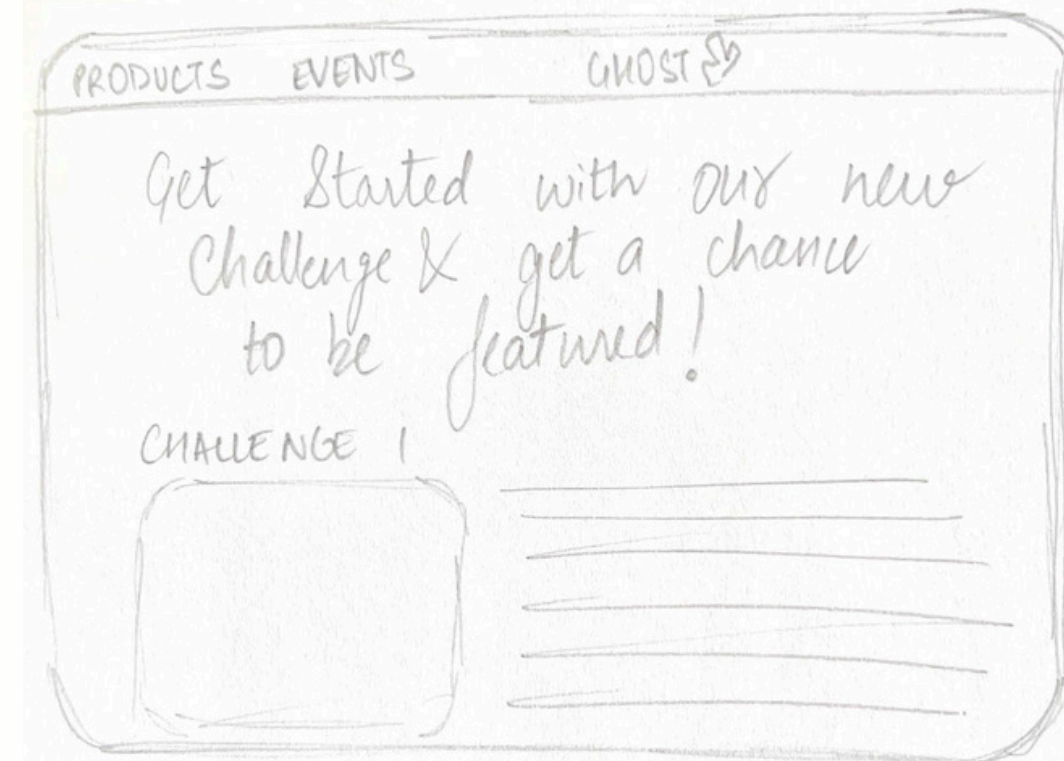 PRODUCTS EVENTS GHOST
Get Started with our new
Challenge & get a chance
to be featured!
CHALLENGE 1